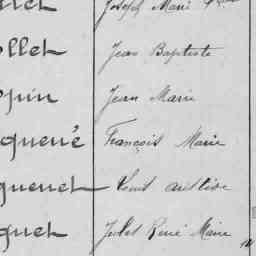 Joseph Marie
ollet Jean Baptiste
Jean Marie
queué François Marie
quenet Louis
quet Jules René Marie